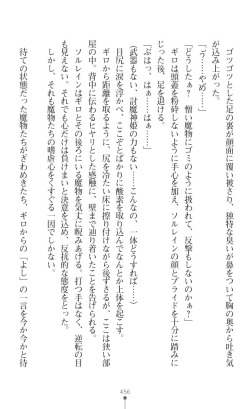 ゴツゴツとした足の裏が顔面に覆い被さり、独特な臭いが鼻をついて胸の奥から吐き気
が込み上がった。
「や……やめ……」
「どうしたぁ？　憎い魔物にゴミのように扱われて、反撃もしないのかぁ？」
ギロは頭蓋を粉砕しないように手心を加え、ソルレインの顔とプライドを十分に踏みに
じった後、足を退ける。
「ぷはっ、はぁ……はぁ……」
（武器もない、討魔神姫の力もない……こんなの、一体どうすれば……）
目尻に涙を浮かべ、ここぞとばかりに酸素を取り込んでなんとか上体を起こす。
ギロから距離を取るように、尻を冷たい床に擦り付けながら後ずさるが、ここは狭い部
屋の中。背中に伝わるヒヤリとした感触に、壁まで辿り着いたことを告げられる。
ソルレインはギロとその後ろにいる魔物を気丈に睨みあげる。打つ手はなく、逆転の目
も見えない。それでも心だけは負けまいと決意を込め、反抗的な態度をとった。
しかし、それも魔物たちの嗜虐心をくすぐる一因でしかない。
待ての状態だった魔物たちがざわめきたち、ギロからの「よし」の一言を今か今かと待
456